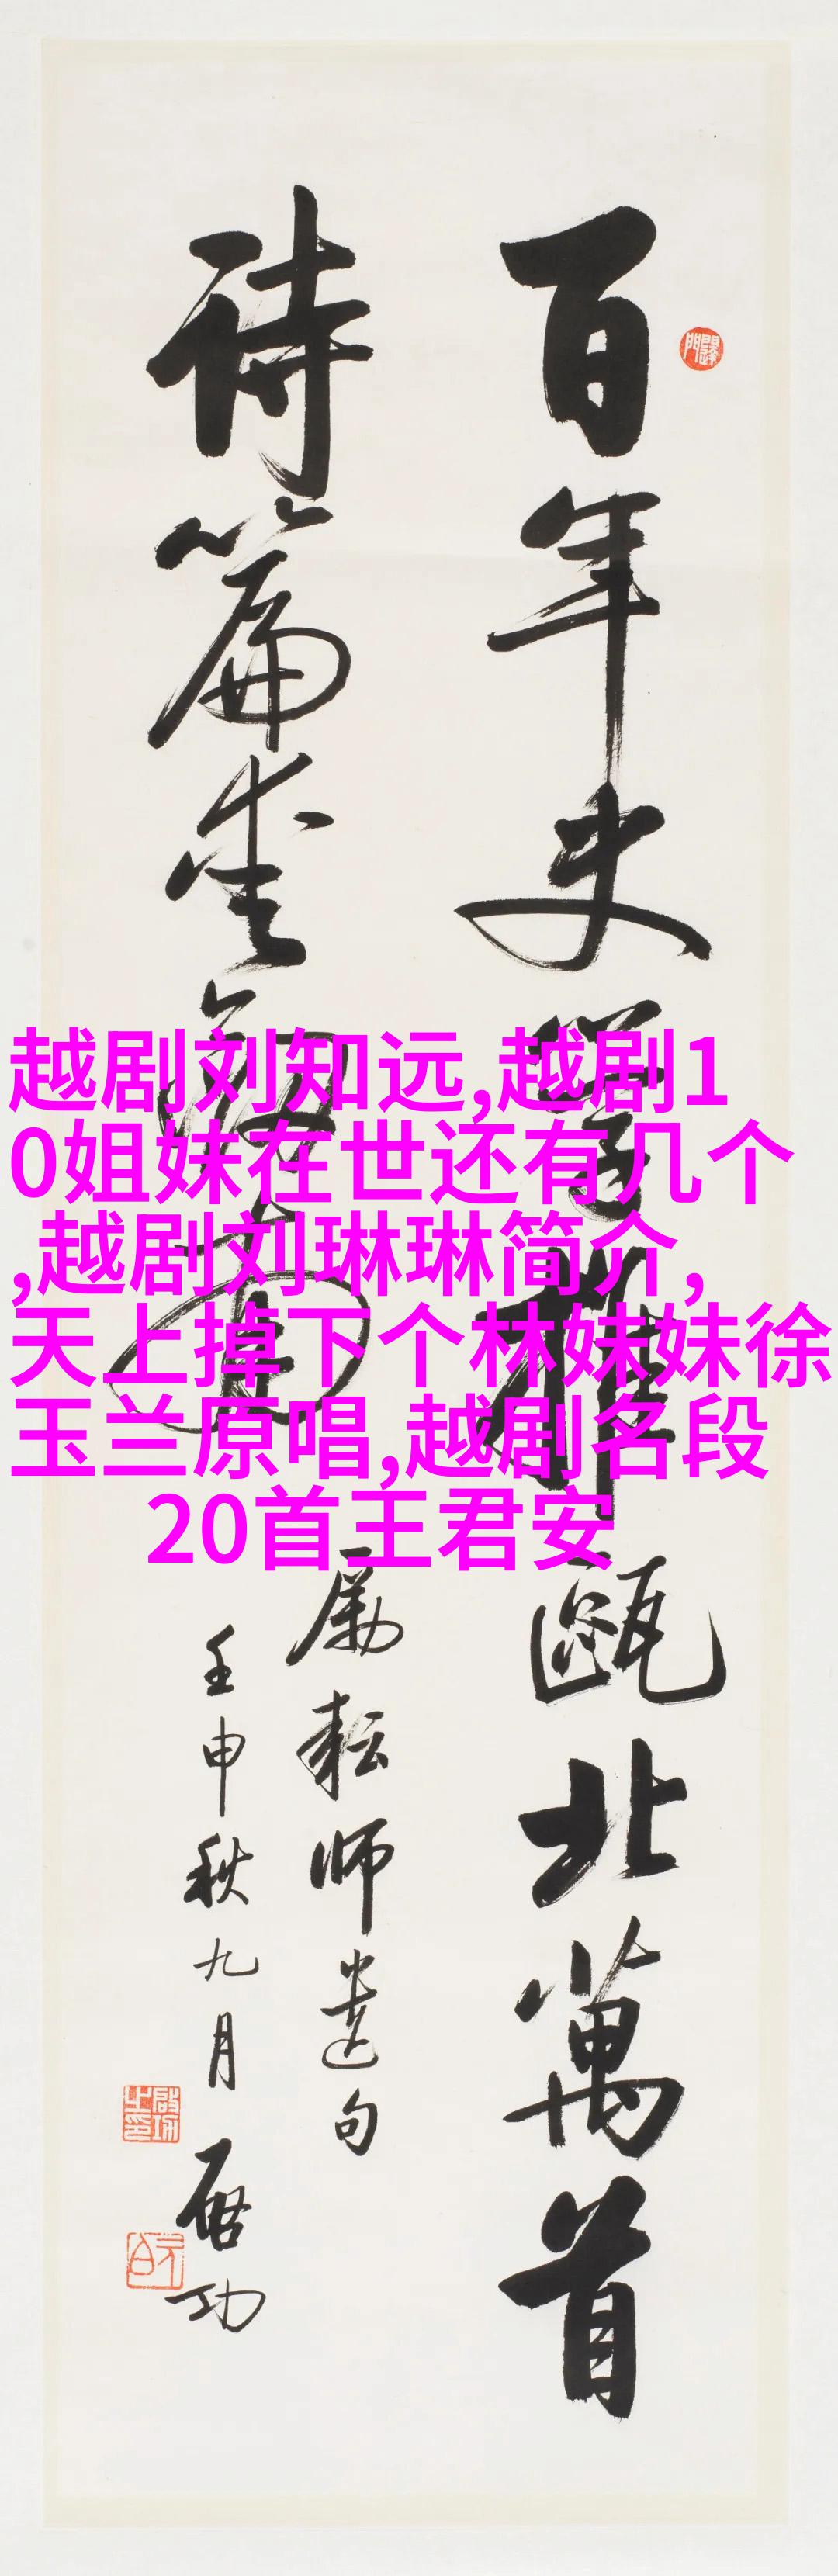 百年史學推甌北萬首
詩篇愛劍南
勵耘師遺句
壬申秋九月
啟功
啟功之印
元白
越剧刘知远,越剧1
0姐妹在世还有几个
,越剧刘琳琳简介,
天上掉下个林妹妹徐
玉兰原唱,越剧名段
20首王君安